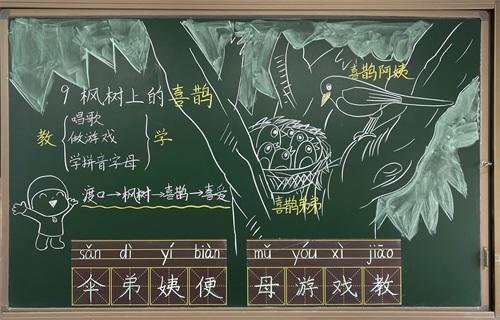 9 枫树上的喜鹊
喜鹊阿姨
唱歌
教 做游戏 学
学拼音字母
渡口→枫树→喜鹊→喜爱
喜鹊弟弟
sǎn dì yí biàn mǔ yóu xì jiāo
伞弟姨便 母游戏教